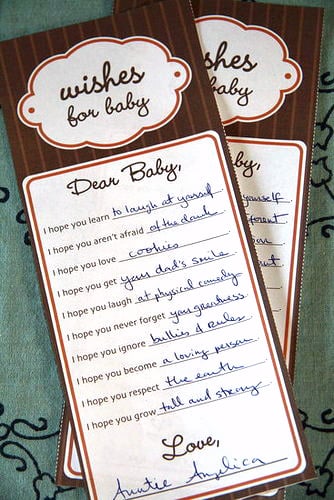 wishes
for baby
Dear Baby,
I hope you learn to laugh at yourself.
I hope you aren't afraid of the dark
I hope you love cookies
I hope you get your dad's smile.
I hope you laugh at physical comedy
I hope you never forget your greatness.
I hope you ignore bullies & rules
I hope you become a loving person.
I hope you respect the earth
I hope you grow tall and strong
Love,
Auntie Angelica
shes
baby
by,
yourself